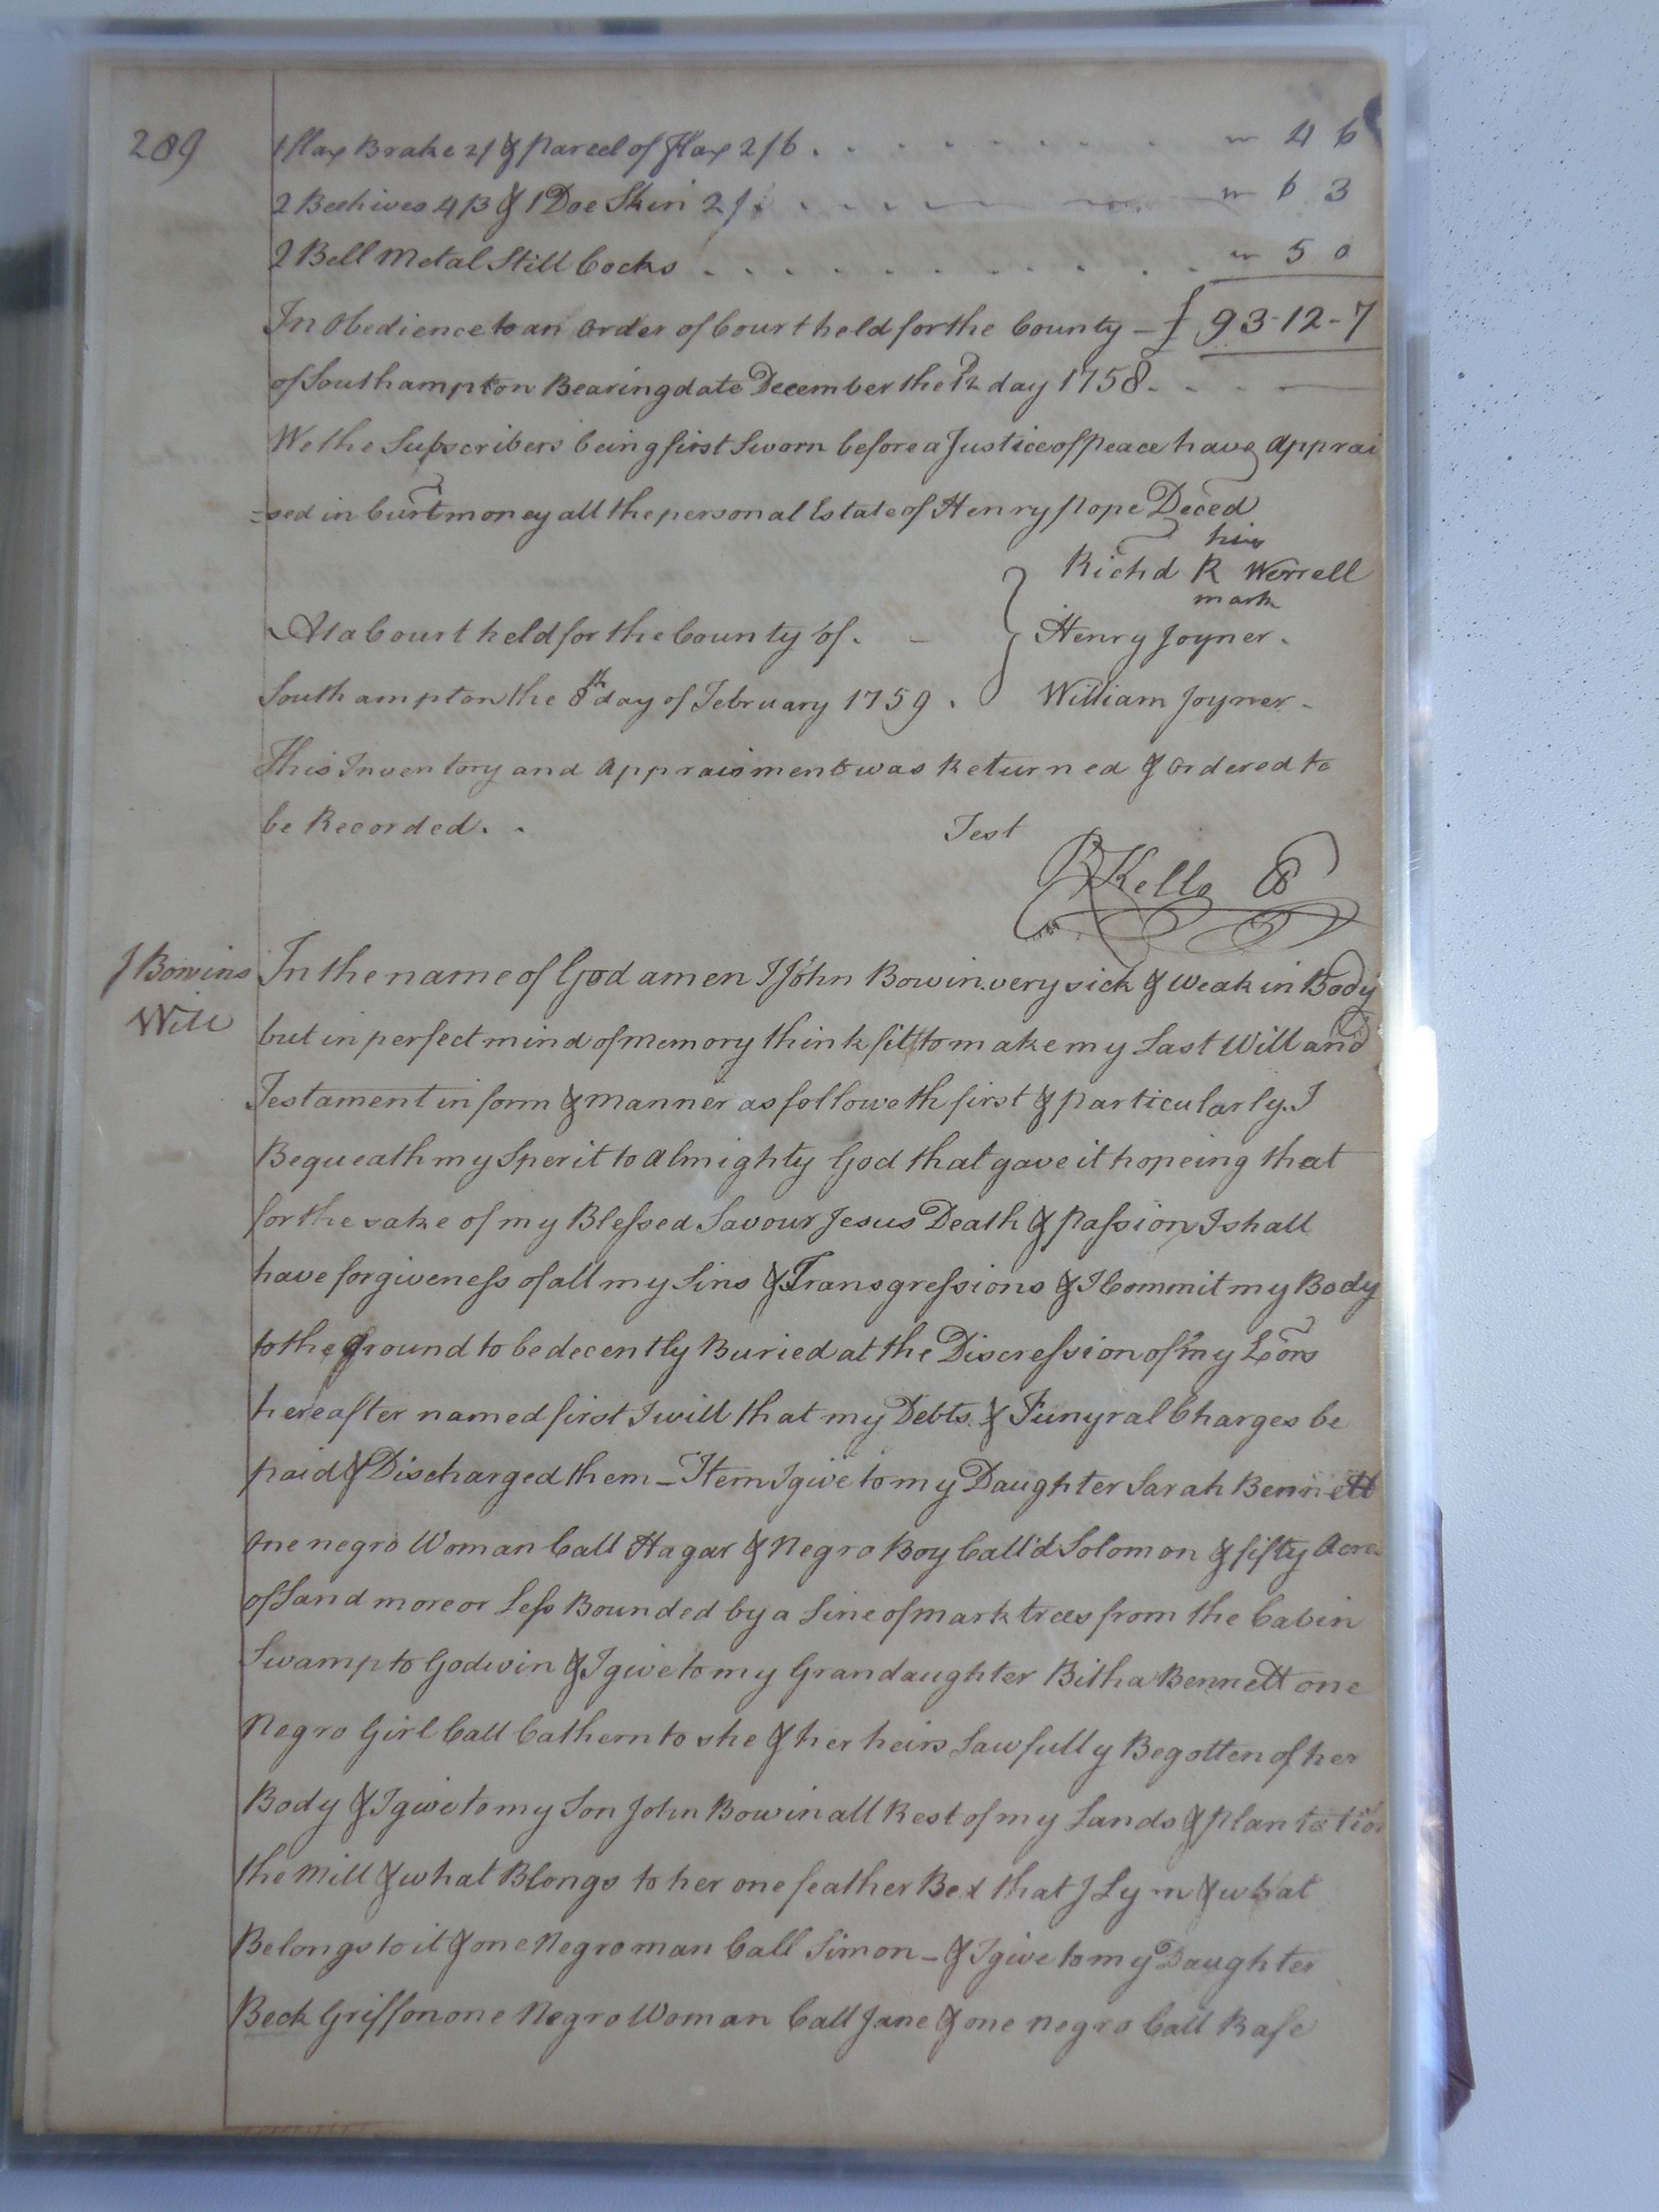 289
1 flax Brake 2/ & parcel of flax 2/6 . . . . . . . . " 4 6
2 Beehives 4/3 & 1 Doe Skin 2/. . . . . " 6 3
2 Bell Metal Still Cocks . . . . . . . . . . " 5 0
In Obedience to an Order of Court held for the County — { 93-12-7
of Southampton Bearing date December the 12 day 1758 - . .
We the Subscribers being first Sworn before a Justice of peace have apprai
=sed in Curt money all the personal Estate of Henry Pope Deced
his
Richd R Worrell
mark
At a Court held for the County of. - Henry Joyner.
Southampton the 8th day of February 1759 . William Joyner -
This Inventory and Appraisment was Returned & Ordered to
be Recorded. . Test
R Kello
J Bowins Will
In the name of God amen I John Bowin very sick & weak in Body
but in perfect mind of memory think fitt to make my Last Will and
Testament in form & manner as followeth first & particularly. I
Bequeath my Sperit to almighty God that gave it hopeing that
for the sake of my Blessed Savour Jesus Death & passion I shall
have forgiveness of all my Sins & Transgressions & I Commit my Body
to the ground to be decently Buried at the Discression of my Exors
hereafter named first I will that my Debts & Funyral Charges be
paid & Discharged them - Item I give to my Daughter Sarah Bennett
One negro Woman Call Hagar & Negro Boy Call'd Solomon & fifty Acre
of Land more or Less Bounded by a Line of mark trees from the Cabin
Swamp to Godwin & I give to my Grandaughter Bitha Bennett one
Negro Girl Call Cathern to she & her heirs Lawfully Begotten of her
Body & I give to my Son John Bowin all Rest of my Lands & plantation
the Mill & what Blongs to her one feather Bed that I Ly in & what
Belongs to it & one Negro man Call Simon - & I give to my Daughter
Beck Griffon one Negro Woman Call Jane & one negro Call Rafe